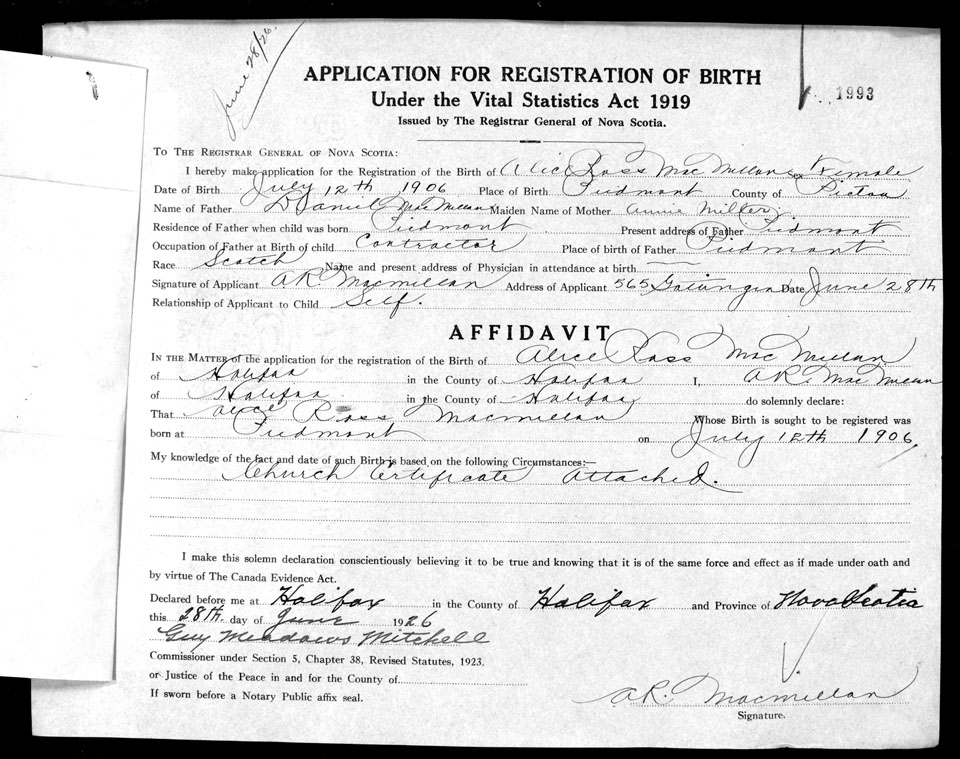 June 28/26.
1993
APPLICATION FOR REGISTRATION OF BIRTH
Under the Vital Statistics Act 1919
Issued by The Registrar General of Nova Scotia.
To The Registrar General of Nova Scotia:
I hereby make application for the Registration of the Birth of Alice Ross MacMillan Sex Female
Date of Birth July 12th 1906 Place of Birth Piedmont County of Pictou
Name of Father Daniel MacMillan Maiden Name of Mother Annie Miller
Residence of Father when child was born Piedmont Present address of Father Piedmont
Occupation of Father at Birth of child Contractor Place of birth of Father Piedmont
Race Scotch Name and present address of Physician in attendance at birth
Signature of Applicant AR Macmillan Address of Applicant 565 Gottingen Date June 28th
Relationship of Applicant to Child Self.
AFFIDAVIT
In the Matter of the application for the registration of the Birth of Alice Ross MacMillan
of Halifax in the County of Halifax I, AR. MacMillan
of Halifax in the County of Halifax do solemnly declare:
That Alice Ross Macmillan Whose Birth is sought to be registered was
born at Piedmont on July 12th 1906,
My knowledge of the fact and date of such Birth is based on the following Circumstances:—
Church Certificate attached.
I make this solemn declaration conscientiously believing it to be true and knowing that it is of the same force and effect as if made under oath and
by virtue of The Canada Evidence Act.
Declared before me at Halifax in the County of Halifax and Province of Nova Scotia
this 28th day of June 1926
Guy Meadows Mitchell
Commissioner under Section 5, Chapter 38, Revised Statutes, 1923.
or Justice of the Peace in and for the County of
If sworn before a Notary Public affix seal.
AR. Macmillan
Signature.